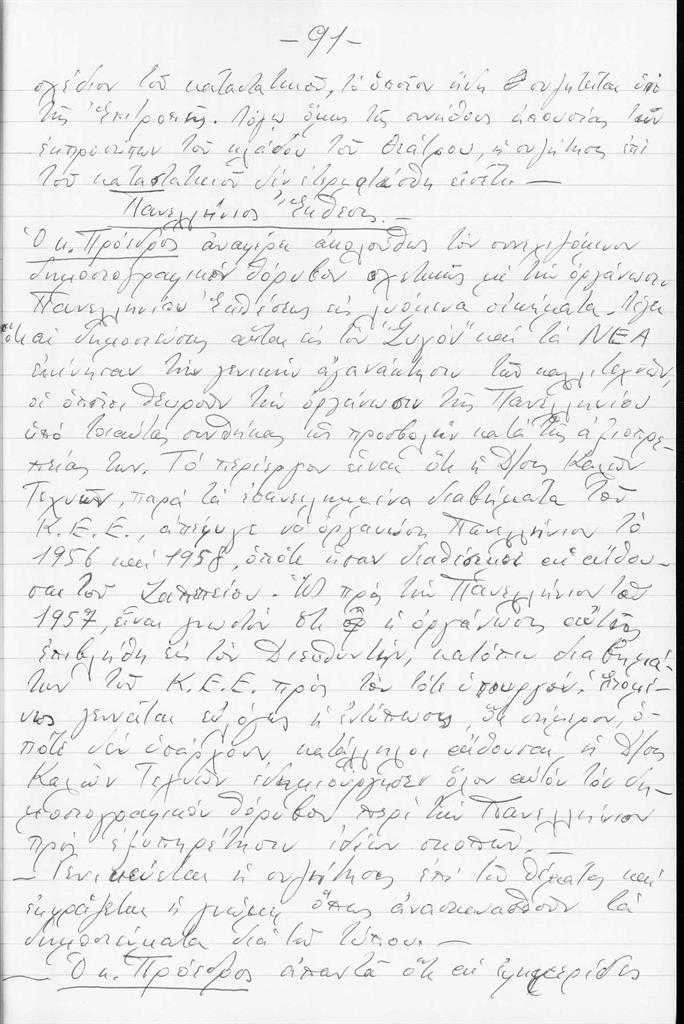 -91-
σχέδιον τοῦ καταστατικοῦ, τὸ ὁποῖον ἤδη συζητεῖται ὑπὸ
τῆς Ἐπιτροπῆς. Λόγω ὅμως τῆς συνήθους ἀπουσίας τῶν
ἐκπροσώπων τοῦ κλάδου τοῦ Θεάτρου, ἡ συζήτησις ἐπὶ
τοῦ καταστατικοῦ δὲν ἐτερματίσθη εἰσέτι. —
Πανελλήνιος Ἔκθεσις. —
Ὁ κ. Πρόεδρος ἀναφέρει ἀκολούθως τὸν συνεχιζόμενον
δημοσιογραφικὸν θόρυβον σχετικῶς μὲ τὴν ὀργάνωσιν
Πανελληνίου Ἐκθέσεως εἰς λυόμενα οἰκήματα. Λέγει
ὅτι αἱ δημοσιεύσεις αὗται εἰς τὸν "Ζυγὸν" καὶ τὰ ΝΕΑ
ἐκίνησαν τὴν γενικὴν ἀγανάκτησιν τῶν καλλιτεχνῶν,
οἱ ὁποῖοι θεωροῦν τὴν ὀργάνωσιν τῆς Πανελληνίου
ὑπὸ τοιαύτας συνθήκας ὡς προσβολὴν κατὰ τῆς ἀξιοπρε-
πείας των. Τὸ περίεργον εἶναι ὅτι ἡ Δ/σις Καλῶν
Τεχνῶν, παρὰ τὰ ἐπανειλημμένα διαβήματα τοῦ
Κ.Ε.Ε., ἀπέφυγε νὰ ὀργανώση Πανελλήνιον τὸ
1956 καὶ 1958, ὁπότε ἦσαν διαθέσιμοι αἱ αἴθου-
σαι τοῦ Ζαππείου. Ὡς πρὸς τὴν Πανελλήνιον τοῦ
1957, εἶναι γνωστὸν ὅτι ἡ ὀργάνωσις αὐτῆς
ἐπεβλήθη εἰς τὸν Διευθυντήν, κατόπιν διαβημά-
των τοῦ Κ.Ε.Ε. πρὸς τὸν τότε ὑπουργόν. Ἑπομέ-
νως γεννᾶται εὐλόγως ἡ ἐντύπωσις, ὅτι σήμερον, ὁ-
πότε δὲν ὑπάρχουν κατάλληλοι αἴθουσαι, ἡ Δ/σις
Καλῶν Τεχνῶν ἐδημιούργησεν ὅλον αὐτὸν τὸν δη-
μοσιογραφικὸν θόρυβον περὶ τὴν Πανελλήνιον
πρὸς ἐξυπηρέτησιν ἰδίων σκοπῶν. —
— Γενικεύεται ἡ συζήτησις ἐπὶ τοῦ θέματος καὶ
ἐκφράζεται ἡ γνώμη ὅπως ἀνασκευασθοῦν τὰ
δημοσιεύματα διὰ τοῦ τύπου. —
— Ὁ κ. Πρόεδρος ἀπαντᾶ ὅτι αἱ ἐφημερίδες